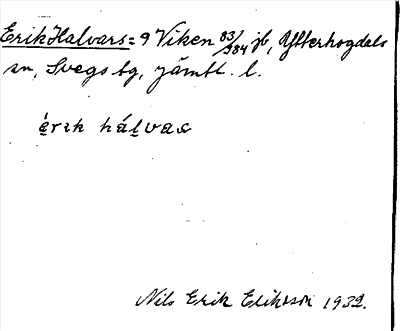 Erik Halvars = 9 Viken 83/984 jb, Ytterhogdals
sn, Svegs tg, Jämtl. l.
érik hálvas
Nils Erik Eliksson 1932.